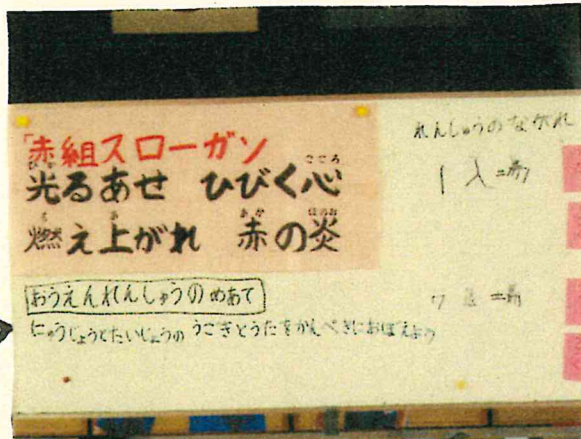 「赤組スローガン
こころ
光るあせ ひびく心
も あ あか ほのお
燃え上がれ 赤の炎
おうえんれんしゅうのめあて
にゅうじょうとたいじょうのうごきとうたをかんぺきにおぼえよう
れんしゅうのながれ
1 入